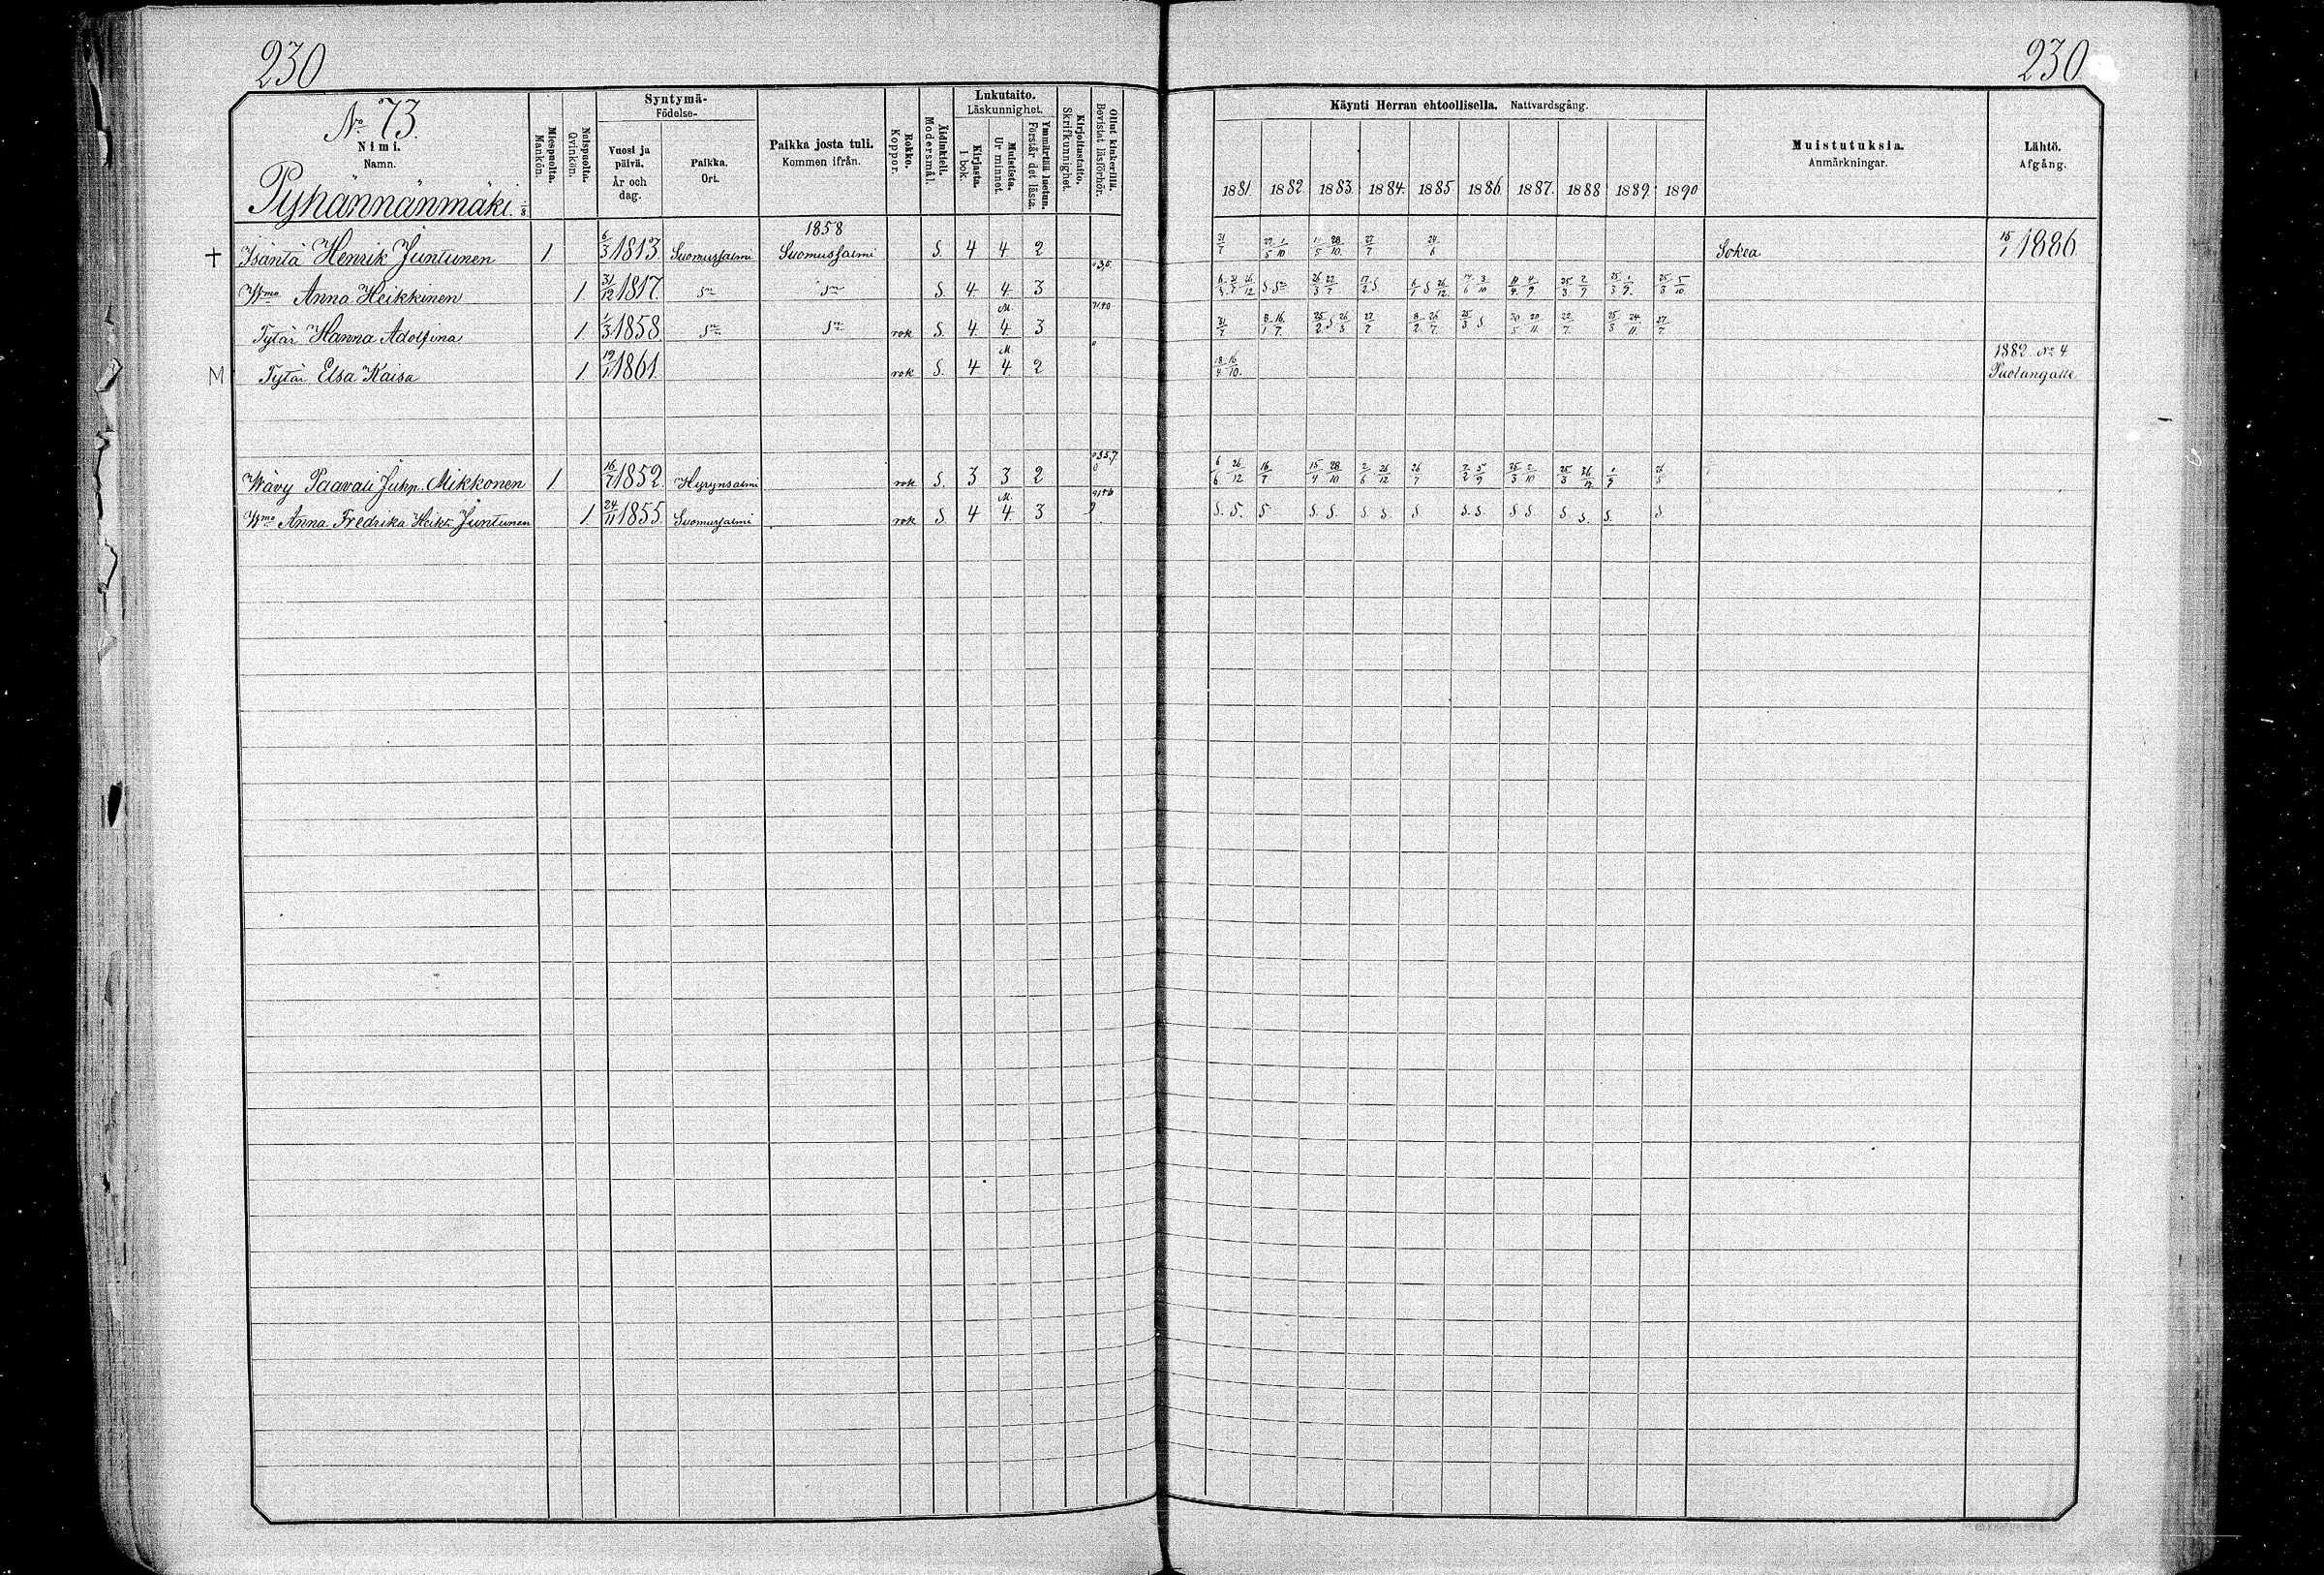 230
230
No 73.
Nimi.
Namn.
Pyhännänmäki. 1/8
Miespuolia. Mankön.
Naispuolia. Qvinkön.
Syntymä-
Födelse-
Vuosi ja päivä. År och dag.
Paikka. Ort.
Paikka josta tuli.
Kommen ifrån.
Rokko. Koppor.
Äidinkieli. Modersmål.
Lukutaito.
Läskunnighet.
Kirjasta. I bok.
Muistista. Ur minnet.
Ymmärtää luetun. Förstår det lästa.
Kirjoitustaito. Skrifkunnighet.
Ollut kinkerillä. Bevistat läsförhör.
Käynti Herran ehtoollisella. Nattvardsgång.
1881. 1882. 1883. 1884. 1885. 1886. 1887. 1888 1889. 1890
Muistutuksia.
Anmärkningar.
Lähtö.
Afgång.
1858
+ Isäntä Henrik Juntunen 1 6/3 1813. Suomussalmi Suomussalmi S. 4 4. 2 31/7 1/10 28/10. 27/7 24/6 Sokea 15/1 1886
Wmo Anna Heikkinen 1. 31/12 1817. S. 4. 4. 3 26/12 26/3 22/7 17/2 S. 26/12. 3/10 4/9 25/3 2/9 25/3 1/9. 25/3 5/10.
Tytär Hanna Adolfina 1. 1/3 1858. rok S. 4. M. 4. 3 31/7 16/7. 25/2. 27/7 8/2. 26/7. 25/3 S 20/11. 22/7. 25/3 24/11. 27/7.
M Tytär Elsa Kaisa 1. 19/7 1861. rok S. 4 M. 4. 2 18/4 16/10. 1882 No 4 Puolangalle
Wävy Paavali Juhp. Mikkonen 1 16/7 1852. Hyrynsalmi rok S. 3 3 2 6/6 26/12 16/7 15/4 28/10 2/6 26/12 26/7 7/2 5/9 25/3 2/10 25/3 26/12 1/9 26/5
Wmo Anna Fredrika Heikt. Juntunen 1. 24/11 1855. Suomussalmi rok S. 4 M. 4. 3 S. S. S S. S. S. S. S S. S. S S S. S. S. S.